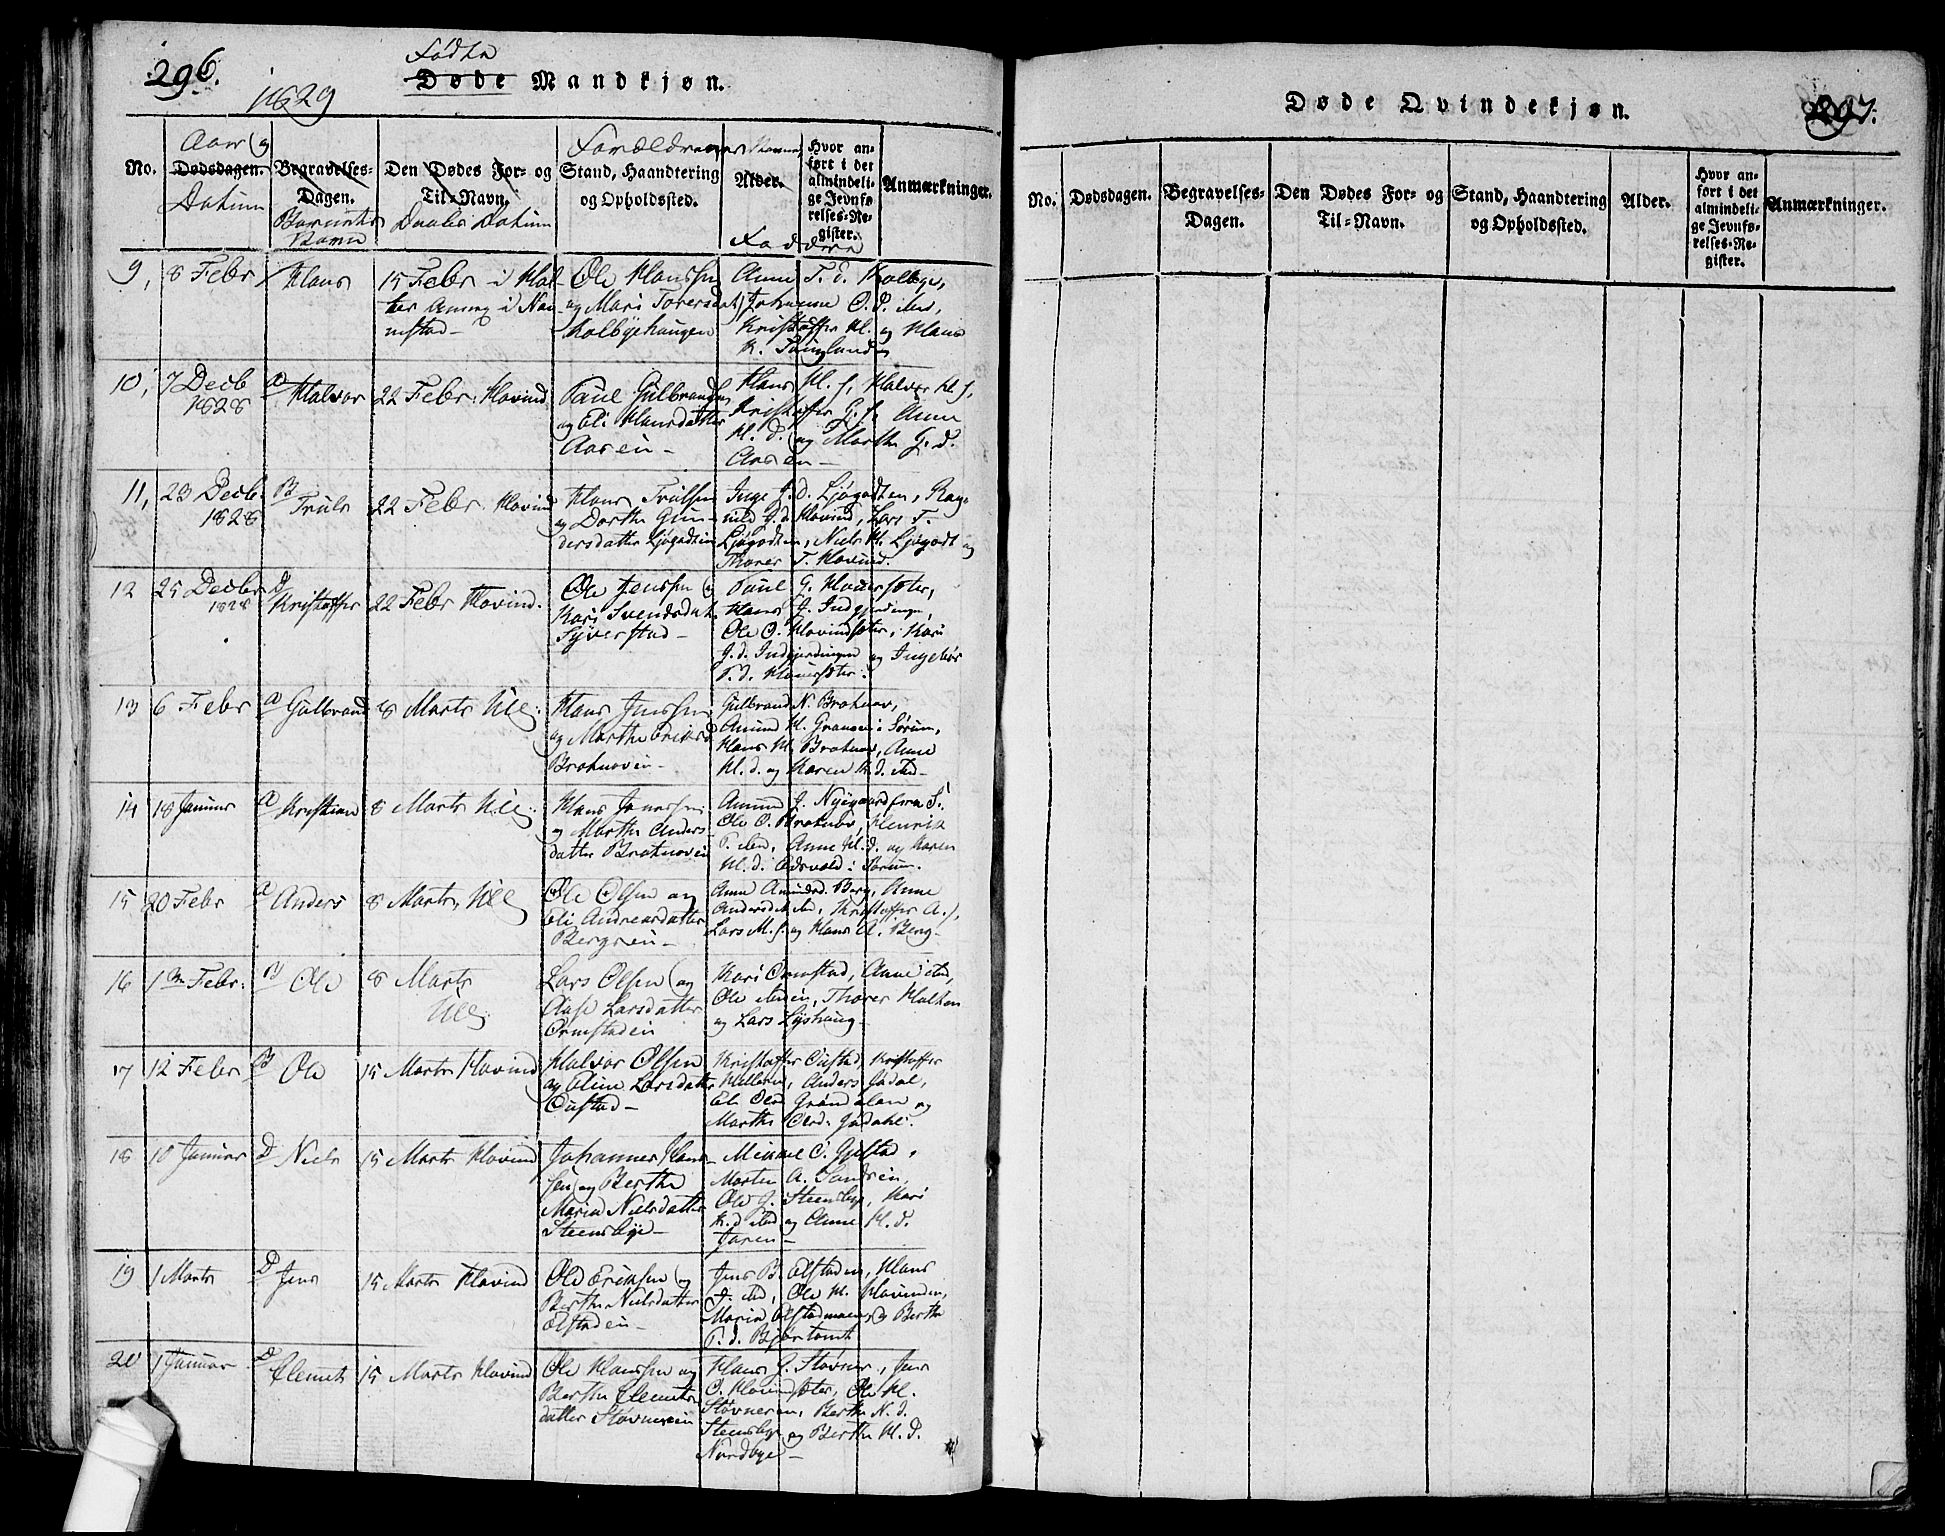 296.
1829
Fødte
Døde Mandkjøn.
No.
Aar og
Dødsdagen.
Datum
Begravelses-
Dagen.
Barnets
Navn
Den Dødes For- og
Til-Navn.
Daabs Datum
Forældrenes Navne
Stand, Haandtering
og Opholdssted.
Alder.
Faddere
Hvor an-
ført i det
almindeli-
ge Jevnfø-
relses-Re-
gister.
Anmærkninger.
9, 8 Febr Hans
15 Febr i
Ole Hanssen
og Mari
Kolbyehaugen
Anne T. E. Kolbye,
Johanne O. D. ibid,
Kristoffer H. og Hans
10, 7 Decb
1828
a Halvor 22 Febr. Hovind
Paul Gulbrands
og Eli Hansdatter
Aasen -
Hans H. s, Halvor H. s,
Kristoffer G. s, Anne
H. d. og Marthe G. d.
Aasen -
11, 23 Decb.
1828
B Truls 22 Febr. Hovind
Hans Trulsen
og Dorthe Gun-
dersdatter Ljøgodtein
Inge J. d. Ljøgodten, Rag-
nild J. d. Hovind, Lars T.
Ljøgodten, Niels H. Ljøgodt og
Thorer T. Hovind.
12 25 Decbr
1828
D Kristoffer 22 Febr Hovind.
Ole Jenssen og
Kari Svendsdat.
Syverstad -
Paul G. Hoversæter,
Hans J. Indgjerdingen,
Ole O. Hovindsæter, Kari
J. d. Indgjerdingen og Ingebor
P. d. Hoversæter.
13 6 Febr a Gulbrand 8 Marts Ull.
Hans Jenssen
og Marthe
Brotnovein -
Gulbrand N. Brotnov,
Amund H. i Sørum,
Hans H. Brotnov, Anne
H. d. og Karen H. d. ibid -
14 18 Januar a Kristian 8 Marts Ull.
Hans Jonassen
og Marthe Anders
datter Brotnovein
Amund J. Nygaard fra S.
Ole O. Brotnov, Henrik
P. ibid, Anne H. d. og Karen
H. d. Edsvold i Sørum.
15 20 Febr a Anders 8 Marts, Ull
Ole Olsen og
Eli Andreasdatter
Bergsein -
Anne Amundsd. Berg, Anne
Andersd. ibid, Kristoffer A. s,
Lars M. s og Hans A. Berg -
16 1ste Febr. B Ole 8 Marts
Ull
Lars Olsen og
Aase Larsdatter
Ormstadein
Kari Ormstad, Anne ibid,
Ole ibiden, Thorer Holten
og Lars
17 12 Febr B Ole 15 Marts Hovind
Halvor Olsen
og Eline Larsdatter
Oustad -
Kristoffer Oustad, Kristoffer
Anders Jødal,
Eli Olsd Grøndalen og
Marthe Olsd. Jødahl.
18 10 Januar D Niels 15 Marts Hovind
Johannes Hans-
sen og Berthe
Maria Nielsdatter
Steensbye -
Mikkel C. Gjestad,
Morten A. Sandsein,
Ole J. Steensbye, Kari
K. d ibid og Anne H. d.
Jaren -
19 1 Marts D Jens 15 Marts Hovind
Ole Eriksen og
Berthe Nielsdatter
Olstadein -
Jens B. Olstaden, Hans
J. ibid, Ole H. Hovinden,
Maria Olstadmoen og Berthe
P. d. Bjørtomt
20 1 Januar D Clemet 15 Marts Hovind
Ole Hanssen og
Berthe Clemets
datter Støvnerein
Hans G. Støvner, Jens
O. Hovindsæter, Ole H.
Støvneren, Berthe N. d.
Steensbye og Berthe H. D.
Nordbye -
297.
Døde Qvindekjøn.
No.
Dødsdagen.
Begravelses-
Dagen.
Den Dødes For- og
Til-Navn.
Stand, Haandtering
og Opholdssted.
Alder.
Hvor an-
ført i det
almindeli-
ge Jevnfø-
relses-Re-
gister.
Anmærkninger.